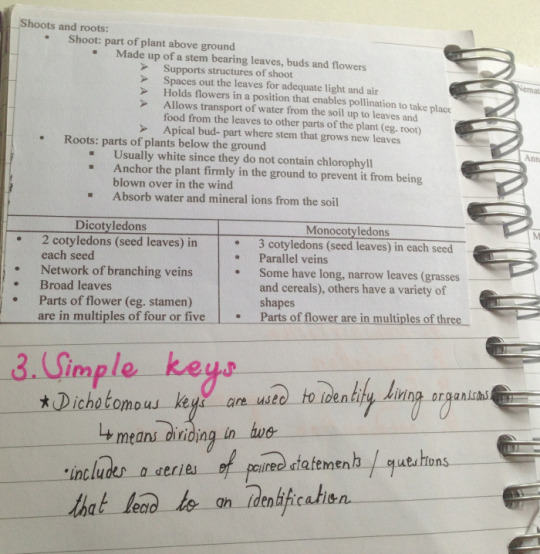 Shoots and roots:
• Shoot: part of plant above ground
▪ Made up of a stem bearing leaves, buds and flowers
➢ Supports structures of shoot
➢ Spaces out the leaves for adequate light and air
➢ Holds flowers in a position that enables pollination to take place
➢ Allows transport of water from the soil up to leaves and
food from the leaves to other parts of the plant (eg. root)
➢ Apical bud- part where stem that grows new leaves
• Roots: parts of plants below the ground
▪ Usually white since they do not contain chlorophyll
▪ Anchor the plant firmly in the ground to prevent it from being
blown over in the wind
▪ Absorb water and mineral ions from the soil
Dicotyledons
• 2 cotyledons (seed leaves) in
each seed
• Network of branching veins
• Broad leaves
• Parts of flower (eg. stamen)
are in multiples of four or five
Monocotyledons
• 3 cotyledons (seed leaves) in each seed
• Parallel veins
• Some have long, narrow leaves (grasses
and cereals), others have a variety of
shapes
• Parts of flower are in multiples of three
3. Simple keys
* Dichotomous keys are used to identify living organisms
↳ means dividing in two
• includes a series of paired statements / questions
that lead to an identification